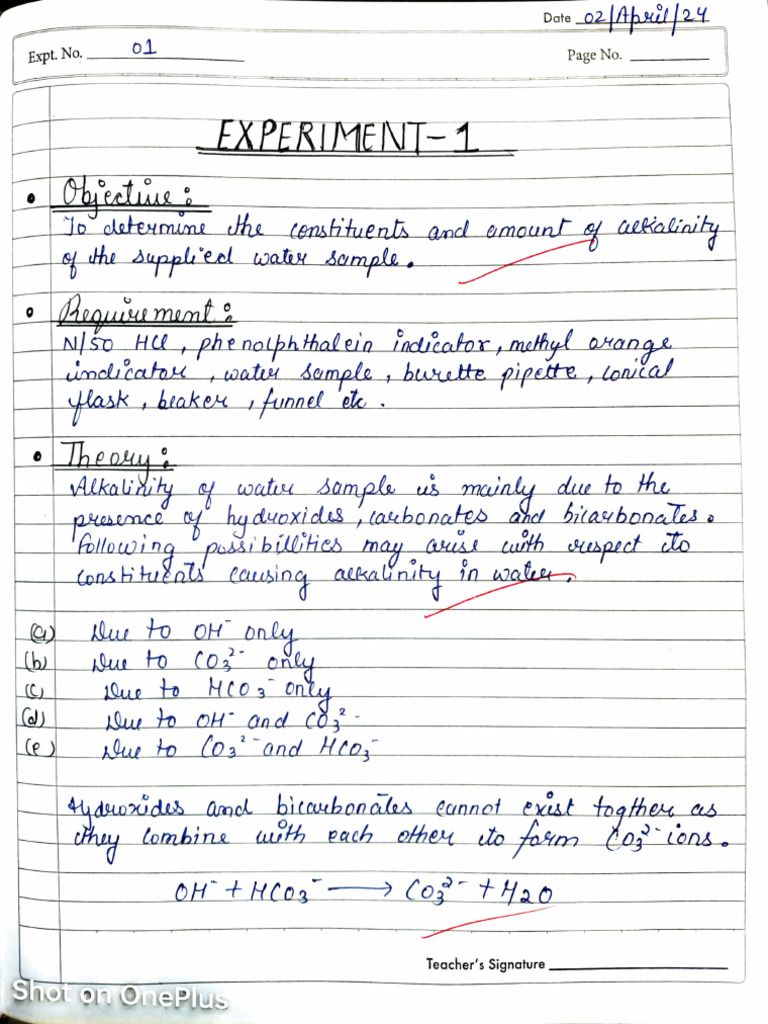 Date 02/April/24
Expt. No. 01
Page No.
EXPERIMENT-1
• Objective:
To determine the constituents and amount of alkalinity
of the supplied water sample.
• Requirement:
N/50 HCl, phenolphthalein indicator, methyl orange
indicator, water sample, burette pipette, conical
flask, beaker, funnel etc.
• Theory:
Alkalinity of water sample is mainly due to the
presence of hydroxides, carbonates and bicarbonates.
Following possibillities may arise with respect to
constituents causing alkalinity in water.
(a) Due to OH⁻ only
(b) Due to CO₃²⁻ only
(c) Due to HCO₃⁻ only
(d) Due to OH⁻ and CO₃²⁻
(e) Due to CO₃²⁻ and HCO₃⁻
Hydroxides and bicarbonates cannot exist togther as
they combine with each other to form CO₃²⁻ ions.
OH⁻ + HCO₃⁻ ⟶ CO₃²⁻ + H2O
Teacher's Signature
Shot on OnePlus